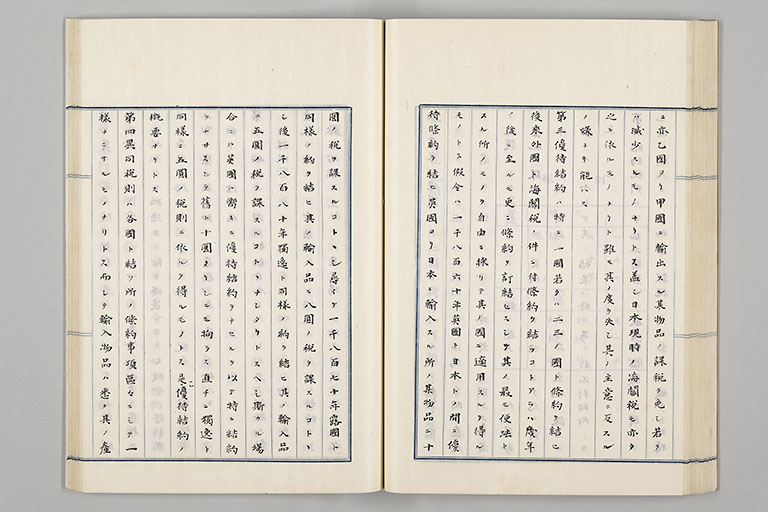 ニ亦乙國ヨリ甲國ニ輸出スル某物品ノ課税ヲ免シ若クハ
減少スルモノナリトス蓋シ日本現時ノ海關税モ亦タ
之ニ依ルモノヽナリト雖モ其ノ度ヲ失シ其ノ主意ニ反スル
ノ嫌ナキ能ハス
第三優待結約ハ特ニ一國若クハ二三ノ國ト條約ヲ結ヒ
後來外國ト海關税ノ件ニ付條約ヲ結フコトアラハ幾年
ノ後ニ至ルモ更ニ條約ヲ訂結セスシテ其ノ最モ便益ト
スル所ノモノヲ自由ニ採リテ其ノ國ニ適用スルヲ得ル
モノトス假令ハ一千八百六十年英國ト日本トノ間ニ優
待條約ヲ結ヒ英國ヨリ日本ニ輸入スル所ノ某物品ニ十
圓ノ税ヲ課スルコトヽシ尋イテ一千八百七十年露國ト
同樣ノ約ヲ結ヒ其ノ輸入品ニ八圓ノ税ヲ課スルコトヽ
シ後一千八百八十年獨逸ト同樣ノ約ヲ結ヒ其ノ輸入品
ニ五圓ノ税ヲ課スルコトヽナシタリトスヘシ斯クル場
合ニハ英國ハ嚮キニ優待結約ヲナセルヲ以テ特ニ結約
ヲナサスシテ舊ト十圓ナリシニモ拘ラス直チニ獨逸ト
同樣ニ五圓ノ税則ニ依ルヲ得ルモノトス是レ優待結約ノ
概要ナリトス
第四異同税則ハ各國ト結フ所ノ條約事項區々ニシテ一
樣ナラサルモノナリトス而シテ輸入物品ハ悉ク其ノ産